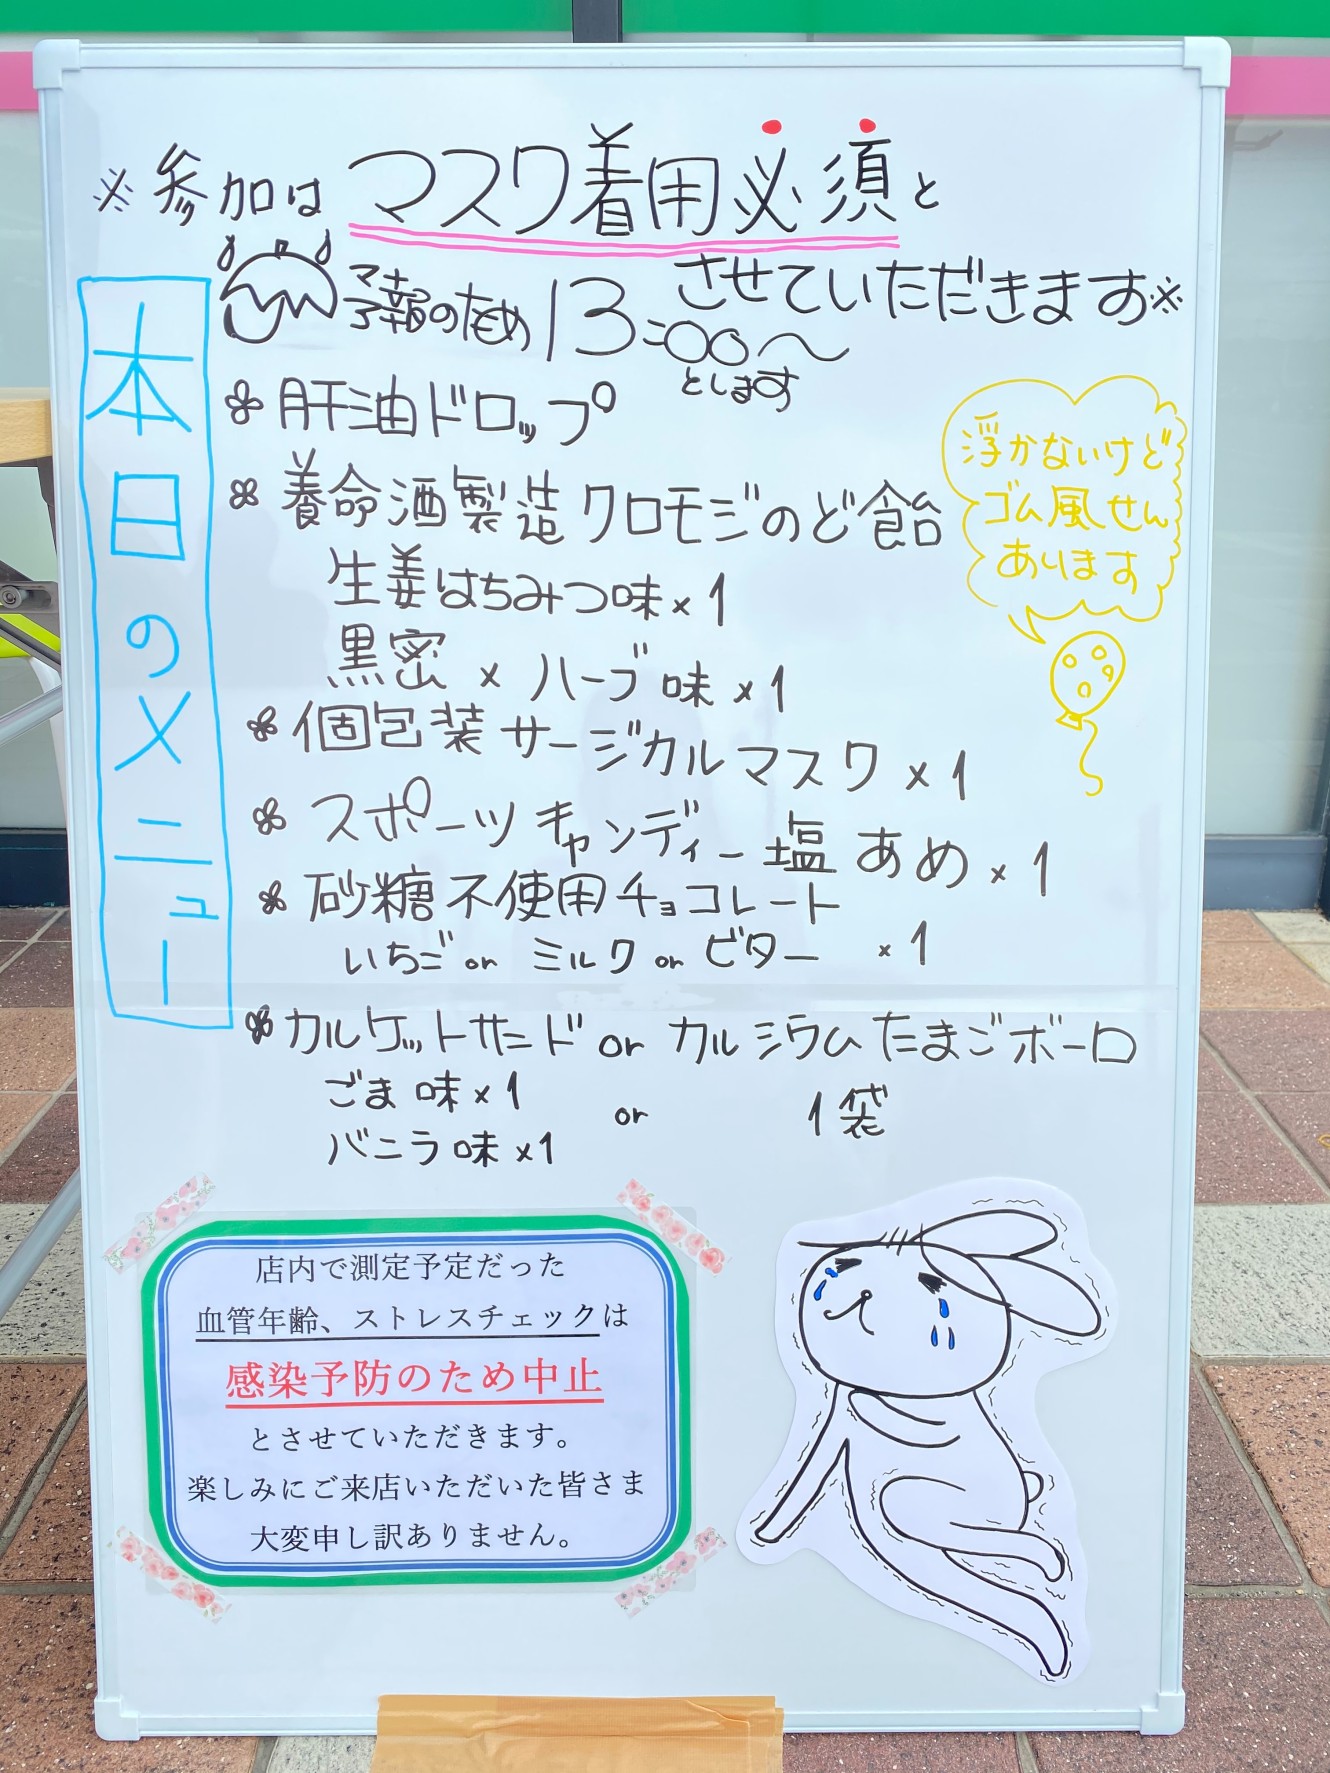 ※参加はマスク着用必須と
させていただきます※
予報のため13:00〜
とします
本日のメニュー
肝油ドロップ
養命酒製造クロモジのど飴
生姜はちみつ味×1
黒密×ハーブ味×1
個包装サージカルマスク×1
スポーツキャンディー塩あめ×1
砂糖不使用チョコレート
いちごorミルクorビター ×1
カルケットサンドorカルシウムたまごボーロ
ごま味×1
バニラ味×1
or 1袋
浮かないけど
ゴム風せん
あります
店内で測定予定だった
血管年齢、ストレスチェックは
感染予防のため中止
とさせていただきます。
楽しみにご来店いただいた皆さま
大変申し訳ありません。